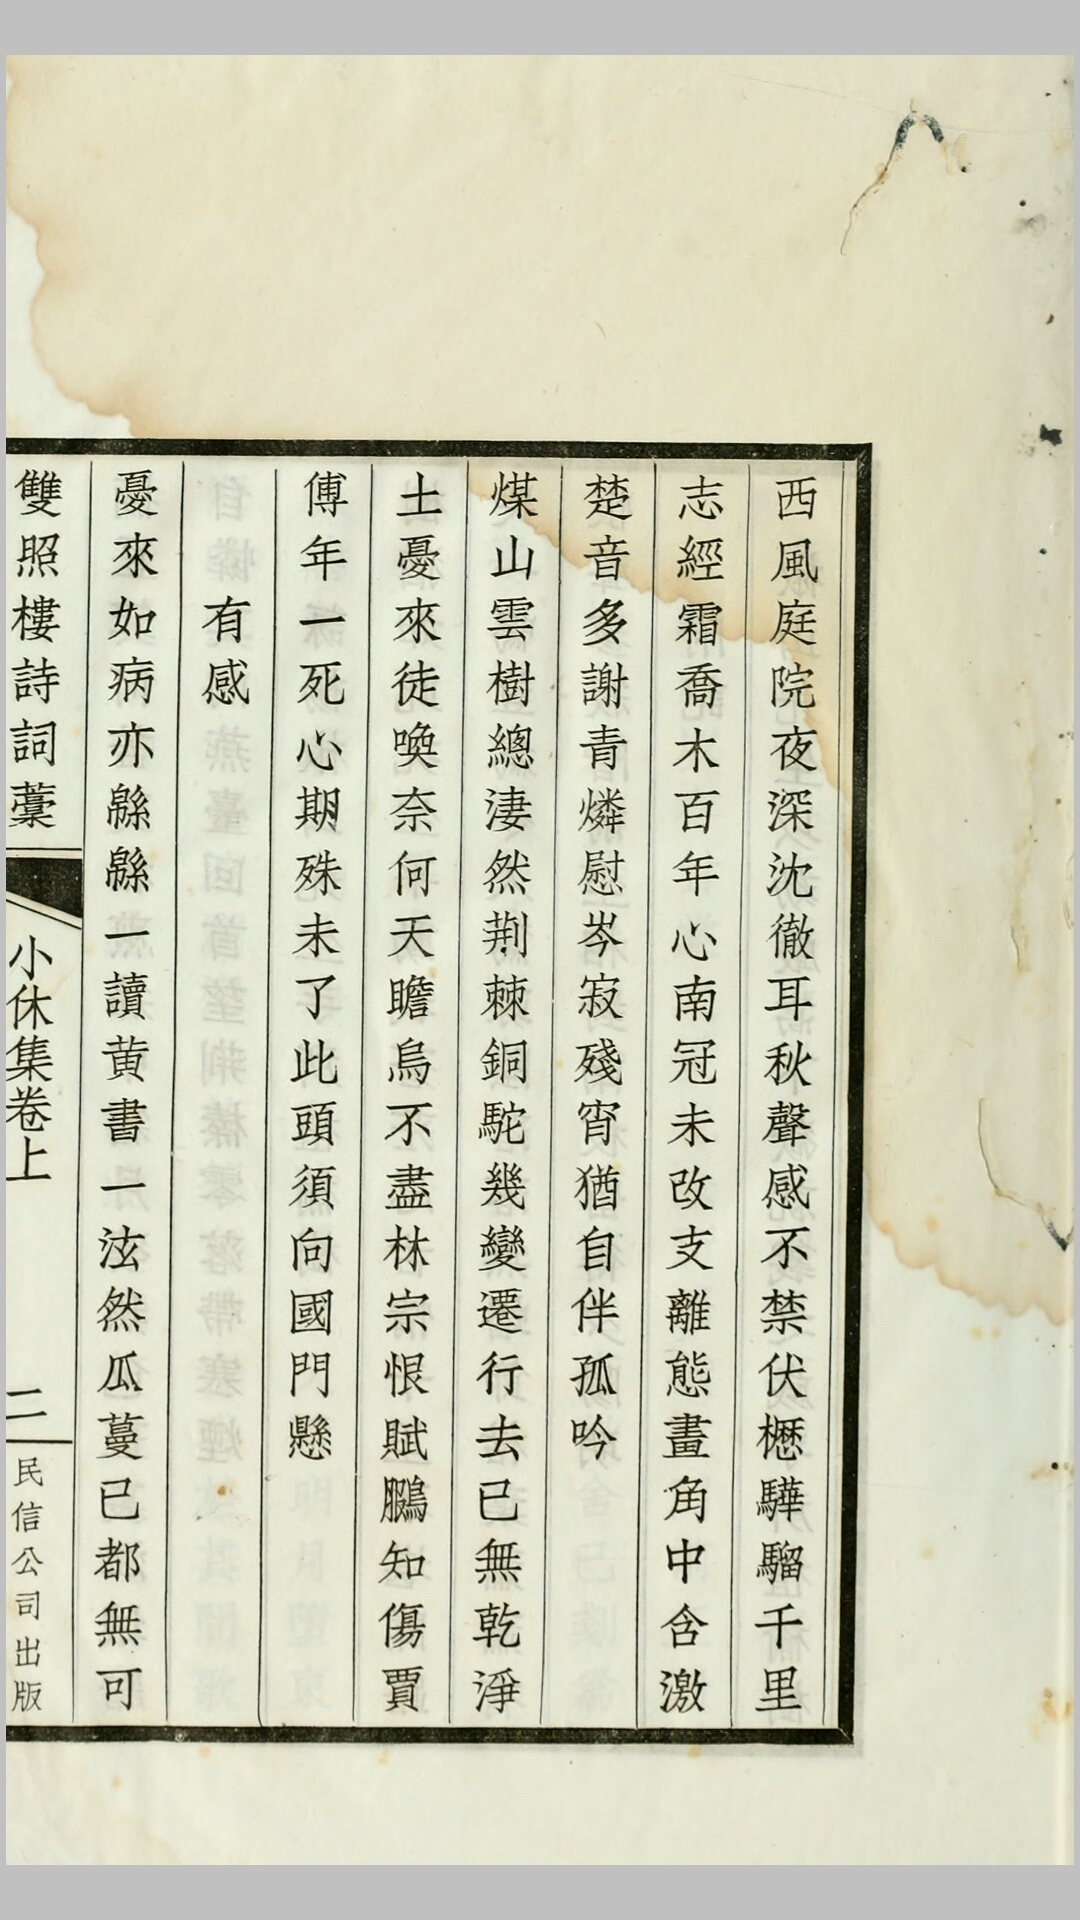 西風庭院夜深沈徹耳秋聲感不禁伏櫪驊騮千里
志經霜喬木百年心南冠未改支離態畫角中含激
楚音多謝青燐慰岑寂殘宵猶自伴孤吟
煤山雲樹總淒然荆棘銅駝幾變遷行去已無乾淨
土憂來徒喚奈何天瞻烏不盡林宗恨賦鵩知傷賈
傅年一死心期殊未了此頭須向國門懸
有感
憂來如病亦緜緜一讀黄書一泫然瓜蔓已都無可
雙照樓詩詞藁
小休集卷上
二
民信公司出版